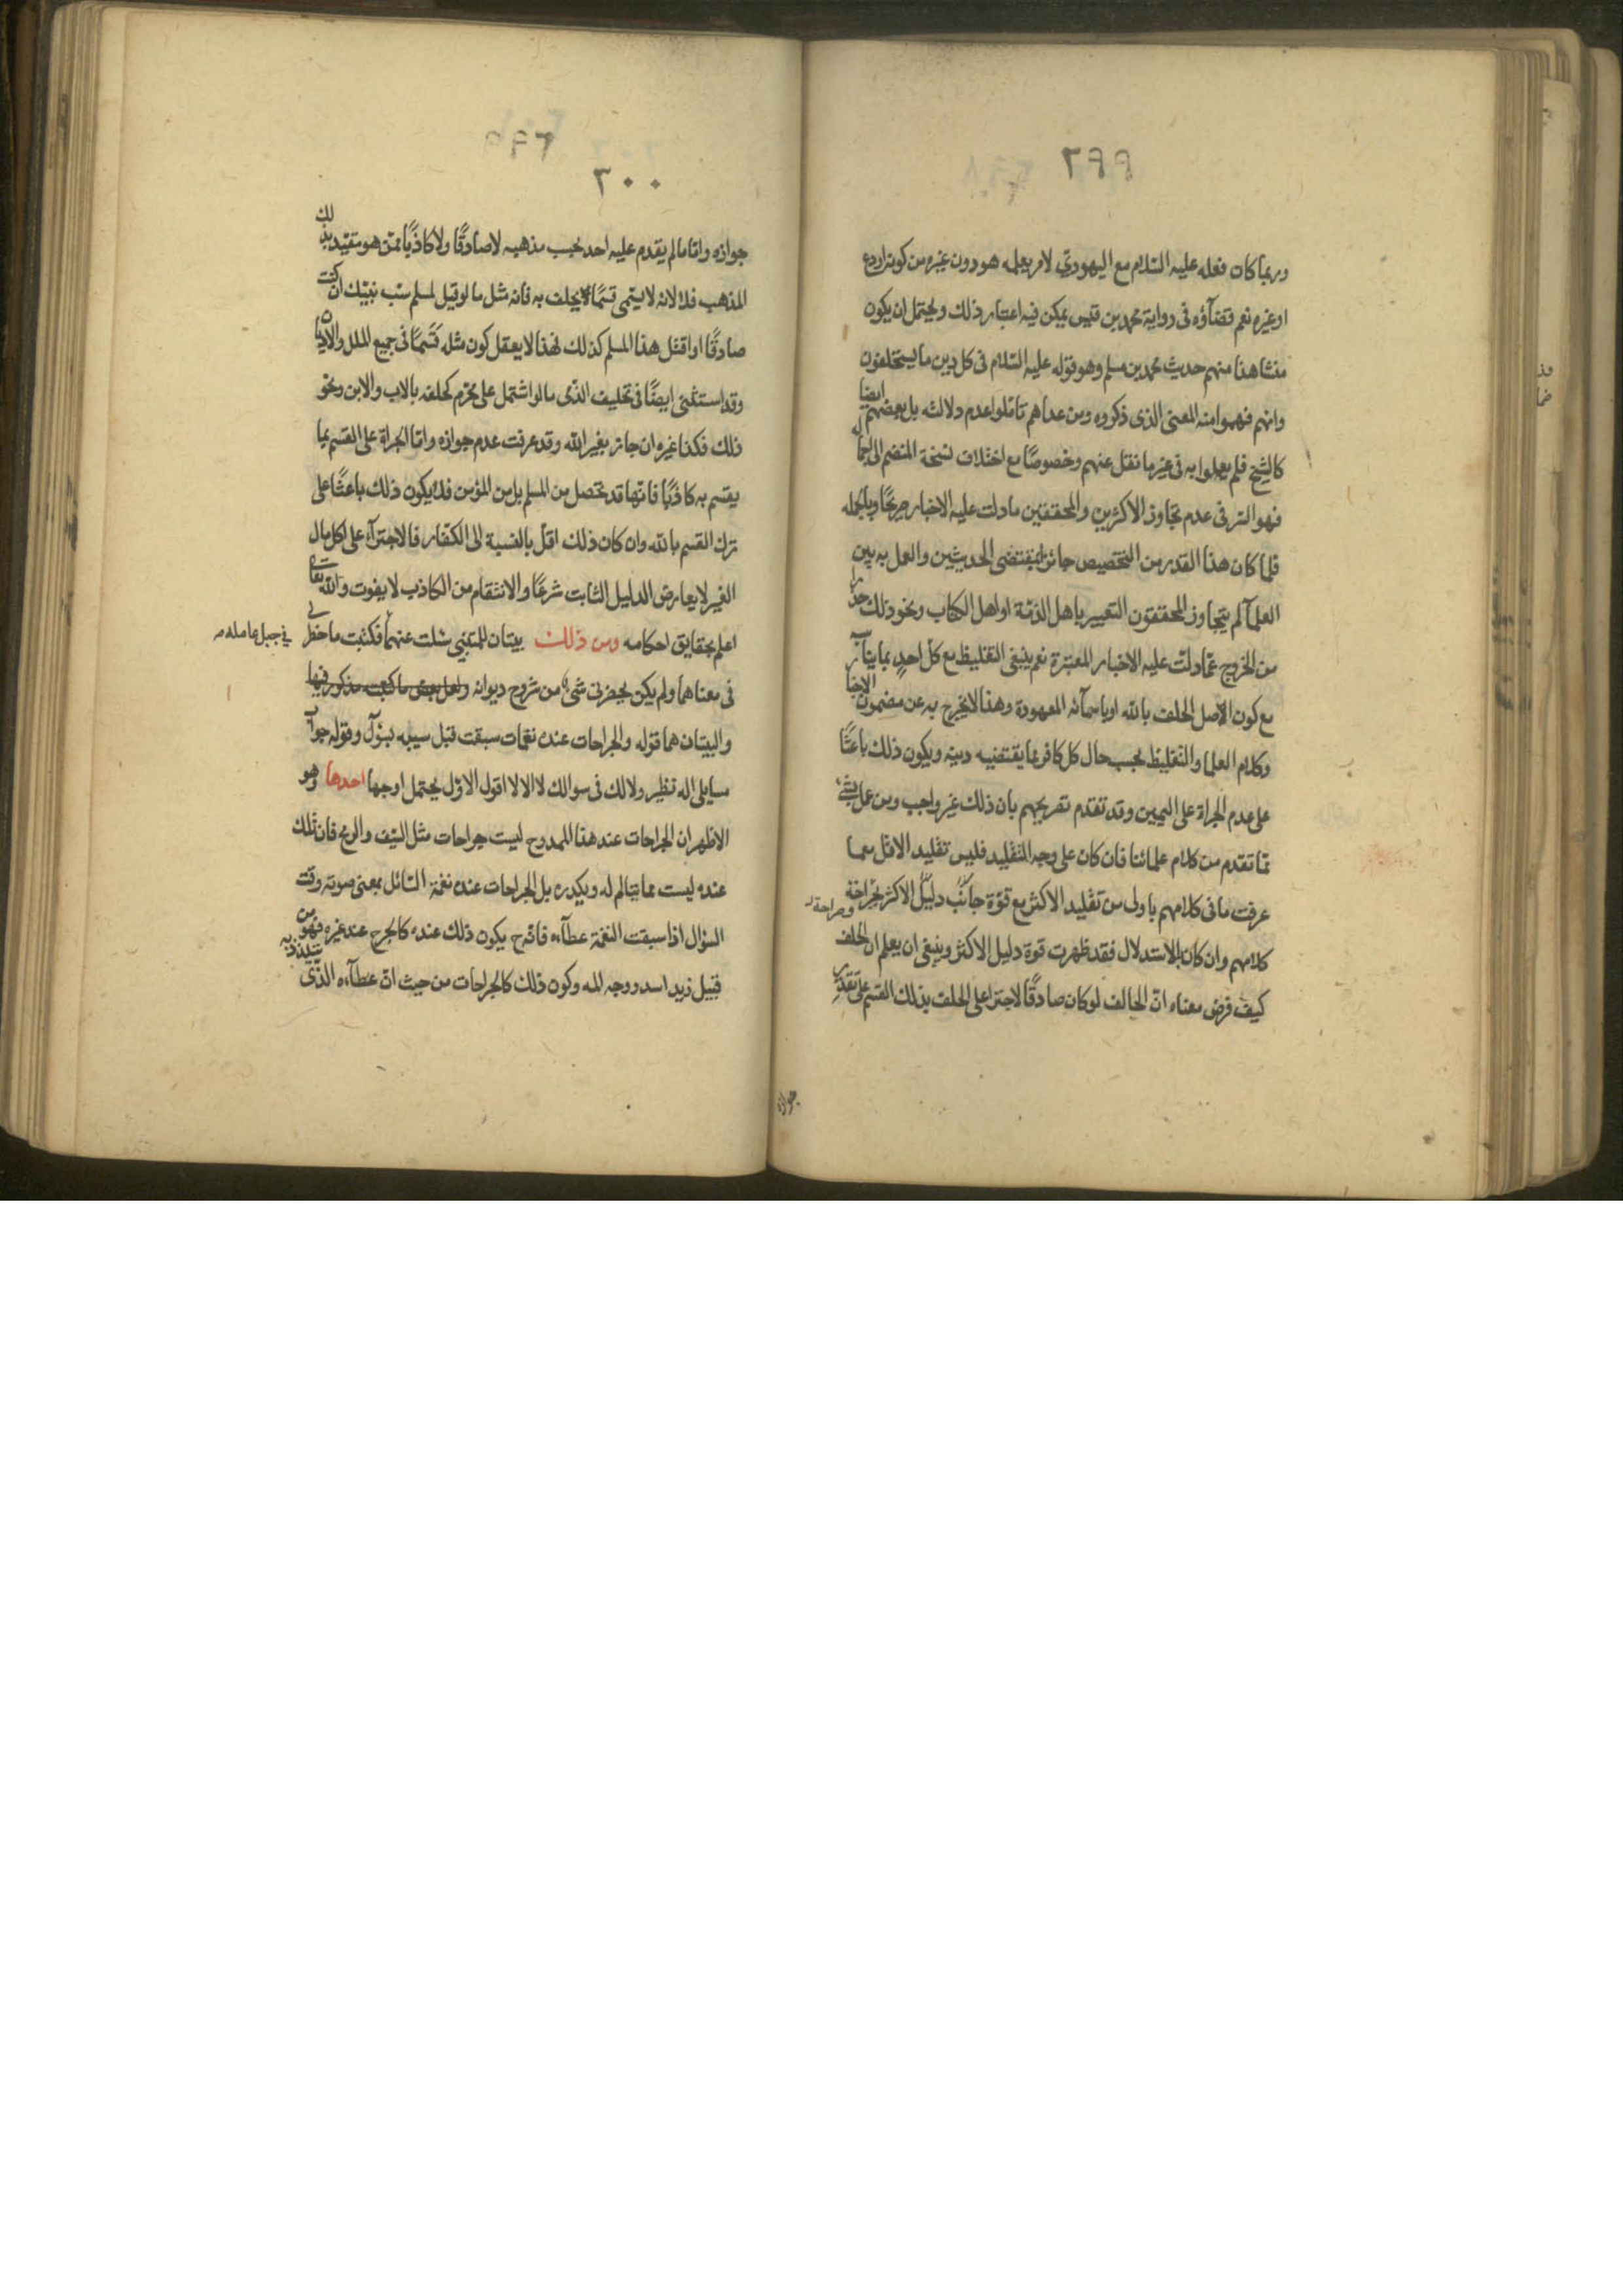 ٢٩٩
وربما كان فعله عليه السّلام مع اليهودي لامر يعلمه هو دون غيره من كونه اردع
او غيره نعم قضآؤه فى رواية محمد بن قيس يمكن فيه اعتبار ذلك ويحتمل ان يكون
منشا هذا منهم حديث محمد بن مسلم وهو قوله عليه السّلام فى كل دين ما يستحلفون
وانهم فهموا منه المعنى الذى ذكروه ومن عداهم تاملوا عدم دلالته بل بعضهم ايضا
كالشيخ فلم يعملوا به فى غير ما نقل عنهم وخصوصًا مع اختلاف نسخة المنضم الى
فهو السّر فى عدم تجاوز الاكثرين والمحققين ما دلت عليه الاخبار صريحًا وبالجمله
فلما كان هذا القدر من التخصيص جائزا بمقتضى الحديثين والعمل به بين
العلمآ لم يتجاوز المحققون التعبير باهل الذمّة او اهل الكتاب ونحو ذلك حذرا
من الخروج عمّا دلت عليه الاخبار المعتبرة نعم ينبغى التغليظ مع كل احدٍ بما يناسب
مع كون الاصل الحلف بالله او باسمآئه المعهودة وهذا لا يخرج به عن مضمون الاخبار
وكلام العلما والتغليظ بحسب حال كل كافر بما يقتضيه دينه ويكون ذلك باعثًا
على عدم الجراة على اليمين وقد تقدم تصريحهم بان ذلك غير واجب ومن عمل بشىء
ممّا تقدم من كلام علمائنا فان كان على وجه التقليد فليس تقليد الاقل مما
عرفت ما فى كلامهم باولى من تقليد الاكثر مع قوّة جانب دليل الاكثر وصراحة
كلامهم وان كان بالاستدلال فقد ظهرت قوة دليل الاكثر وينبغى ان يعلم ان الحلف
كيف فرض معناه انّ الحالف لو كان صادقًا لاجترا على الحلف بذلك القسم على تقدير
جوازه
٣٠٠
جوازه وامّا ما لم يقدم عليه احد بحسب مذهبه لا صادقًا ولا كاذبًا ممّن هو متقيّد بذلك
المذهب فلا لانه لا يسمّى قسمًا ولا يحلف به فانه مثل ما لو قيل لمسلم سُب نبيّك ان كنت
صادقًا او اقتل هذا المسلم كذلك فهذا لا يعقل كون مثله قسمًا فى جميع الملل والاديان
وقد استثنى ايضًا فى تحليف الذّمى ما لو اشتمل على محرّم كحلفه بالاب والابن ونحو
ذلك فكذا غيره ان جاز بغير الله وقد عرفت عدم جوازه وامّا الجراة على القسم بما
يقسم به كاذبًا فانها قد تحصل من المسلم بل من المؤمن فلا يكون ذلك باعثًا على
ترك القسم بالله وان كان ذلك اقلّ بالنسبة الى الكفّار فالاجترآء على اكل مال
الغير لا يعارض الدليل الثابت شرعًا والانتقام من الكاذب لا يفوت والله تعالى
اعلم بحقايق احكامه ومن ذلك بيتان للمتنبى سُئلت عنهما فى جبل عامله فكتبت ما خطر لى
فى معناهما ولم يكن يحضرنى شىء من شروح ديوانه ولعل بعض ما كتبته مذكور فيها
والبيتان هما قوله والجراحات عنده نغمات سبقت قبل سيبه بسؤآل وقوله جواب
مسايلى اله نظير ولا لك فى سوالك لا الا لا اقول الاوّل يحتمل اوجها احدها وهو
الاظهر ان الجراحات عند هذا الممدوح ليست جراحات مثل السّيف والرمح فان تلك
عنده ليست مما يتالم له ويكدره بل الجراحات عنده نغمة السّائل بمعنى صوته وقت
السؤال اذا سبقت النغمة عطآءه فانّه ح يكون ذلك عنده كالجرح عند غيره فهو من
قبيل زيد اسد ووجه المه وكون ذلك كالجراحات من حيث انّ عطآءه الذّى يتلذذ به